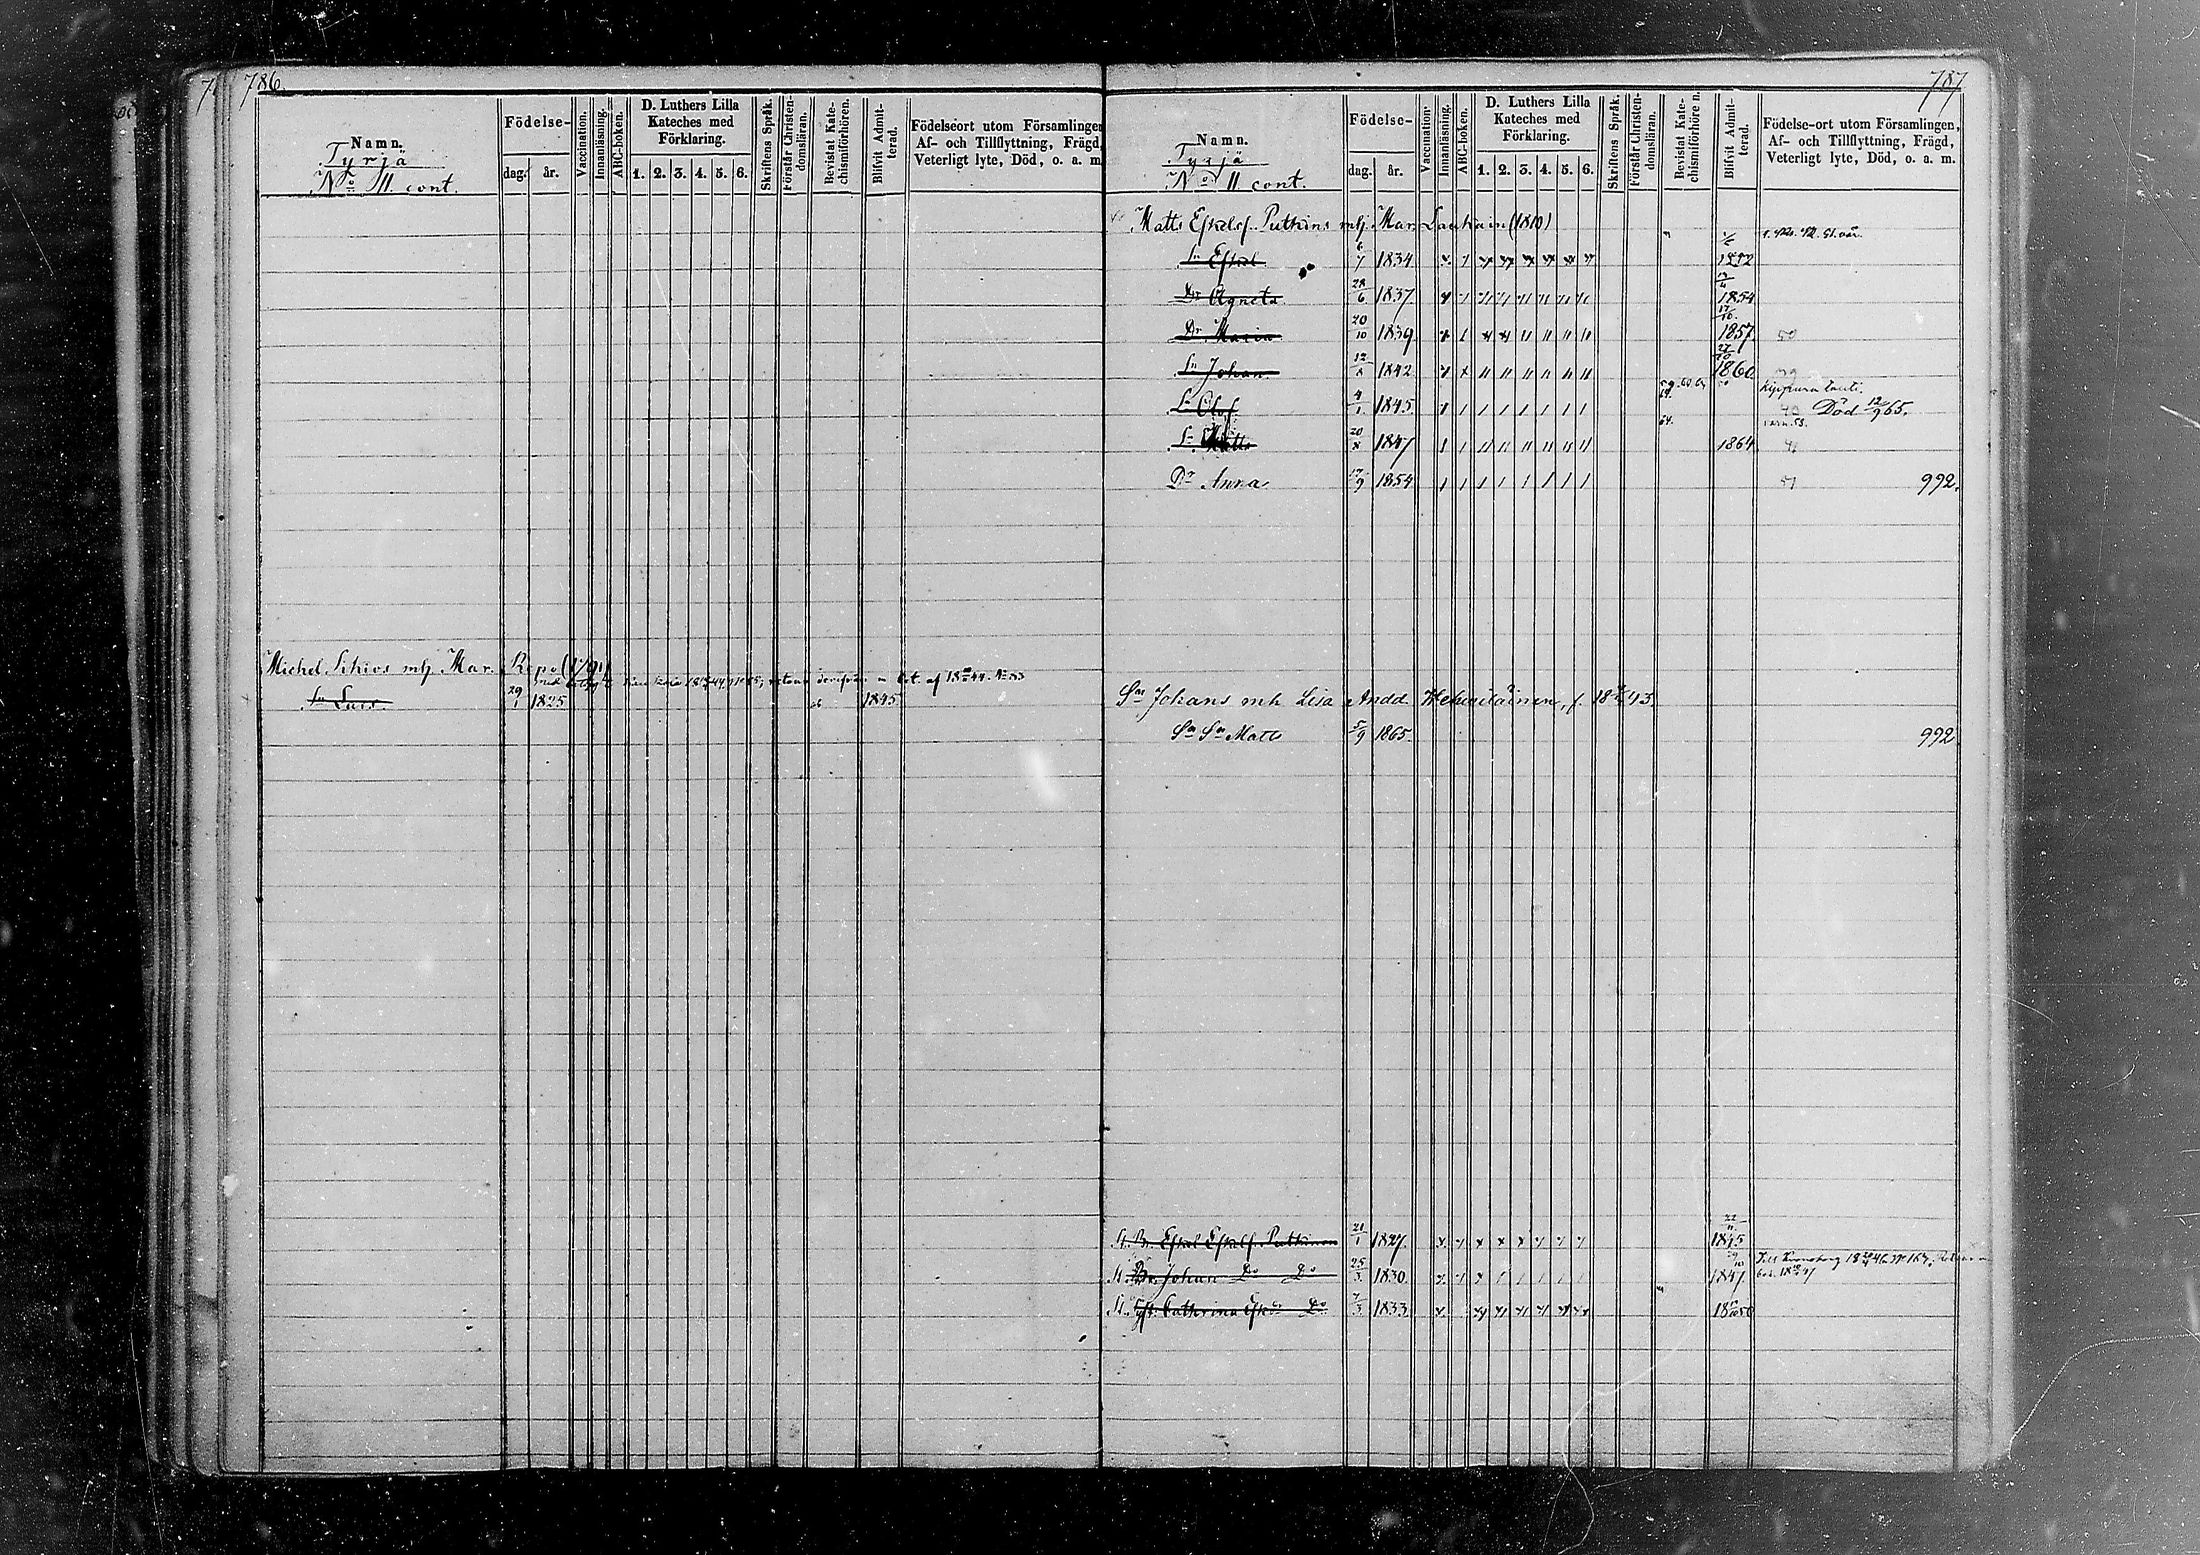 786.
Namn.
Tyrjä
No 11 cont.
Födelse-
dag. år.
Vaccination.
Innanläsning.
ABC-boken.
D. Luthers Lilla
Kateches med
Förklaring.
1. 2. 3. 4. 5. 6.
Skriftens Språk.
Förstår Christen-
domsläran.
Bevistat Kate-
chismiförhören.
Blifvit Admit-
terad.
Födelseort utom Församlingen
Af- och Tillflyttning, Frägd,
Veterligt lyte, Död, o. a. m.
Michel Sihvos mhj Mar. Repo (1791)
Sn Lars. 29/1 1825 1845
787
Namn.
Tyrjä
No 11 cont.
Födelse-
dag. år.
Vaccination.
Innanläsning.
ABC-boken.
D. Luthers Lilla
Kateches med
Förklaring.
1. 2. 3. 4. 5. 6.
Skriftens Språk.
Förstår Christen-
domsläran.
Bevistat Kate-
chismiförhören.
Blifvit Admit-
terad.
Födelse-ort utom Församlingen,
Af- och Tillflyttning, Frägd,
Veterligt lyte, Död, o. a. m.
Matts Eskelsf. Putkins mhj. Mar. Laukain (1810)
Sn Eskel 6/7 1834
Dr Agneta 28/6 1837 1854
Dr Maria 20/10 1839 1857 50
Sn Johan 12/8 1842 1860
Sn Olof 4/1 1845 Död 12/9 65.
Sn Matts 20/8 1847 1864 41
Dr Anna 17/9 1854 51 992.
Sns Johans mh Lisa Andd. , f. 18 43.
Sns Sn Matts 5/9 1865. 992
St. Br. Eskel Eskelsf. Putkinen 21/1 1827. 22/11 1845
St. Br. Johan Do Do 25/3 1830. 1847
St. Syst. Cathrina Do 7/3 1833. 1850